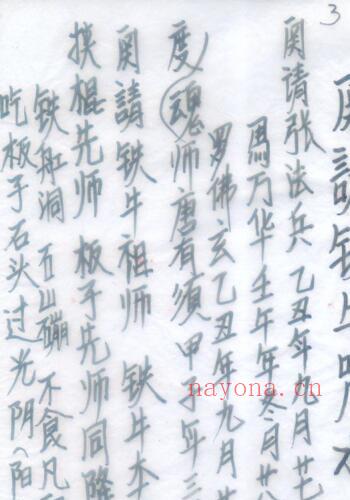 3
奉請张法兵 乙丑年九月廿
馬万华壬午年冬月廿
罗佛玄乙丑年九月廿
度魂师唐有須甲子年三
奉請铁牛祖师 铁牛本
摸棍先师 板子先师同降
铁船洞 五山硼 不食凡
吃板子石头过光阴(阳
nayona.cn